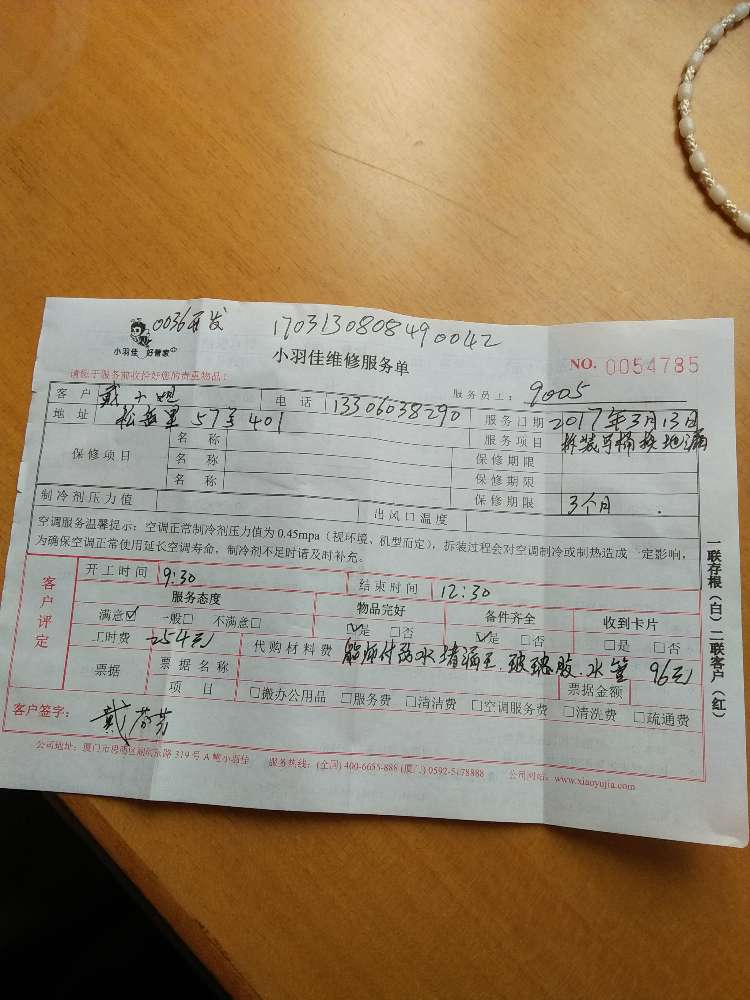 0036开发 170313080849 0042
小羽佳 好管家
小羽佳维修服务单
NO. 0054785
请您于服务前收拾好您的贵重物品:
服务员工: 9005
客户 戴小姐 电话 13306038290 服务日期 2017年3月13日
地址 57号401 服务项目 拆装马桶换地漏
保修项目 名称 保修期限
名称 保修期限
名称 保修期限 3个月
制冷剂压力值 出风口温度
空调服务温馨提示:空调正常制冷剂压力值为0.45mpa(视环境、机型而定),拆装过程会对空调制冷或制热造成一定影响,
为确保空调正常使用延长空调寿命,制冷剂不足时请及时补充。
客户评定
开工时间 9:30 结束时间 12:30
服务态度 物品完好 备件齐全 收到卡片
满意☑ 一般□ 不满意□ ☑是 □否 ☑是 □否 □是 □否
工时费 254元 代购材料费 堵漏王.玻璃胶.水管 96元
票据 票据名称 票据金额
项目 □搬办公用品 □服务费 □清洁费 □空调服务费 □清洗费 □疏通费
客户签字:
公司地址:厦门市 319号A幢小羽佳 服务热线:(全国)400-6655-888 (厦门)0592-5478888 公司网站:www.xiaoyujia.com
一联存根(白)二联客户(红)